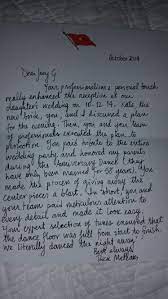 October 2014
Dear Joey G.
Your professionalism & personal touch
really enhanced the reception at our
daughter's wedding on 10.12.14. Kate, the
new bride, you, and I discussed a plan
for the evening. Then you and your team
of professionals executed the plan to
perfection. You paid tribute to the entire
wedding party and honored my parents
during the Anniversary Dance (they
have only been married for 68 years). You
made this process of giving away the
center pieces a blast. In short, you and
your team paid meticulous attention to
every detail and made it look easy.
Your expert selection of tunes ensured that
the dance floor was full from start to finish.
We literally danced the night away.
Best always,